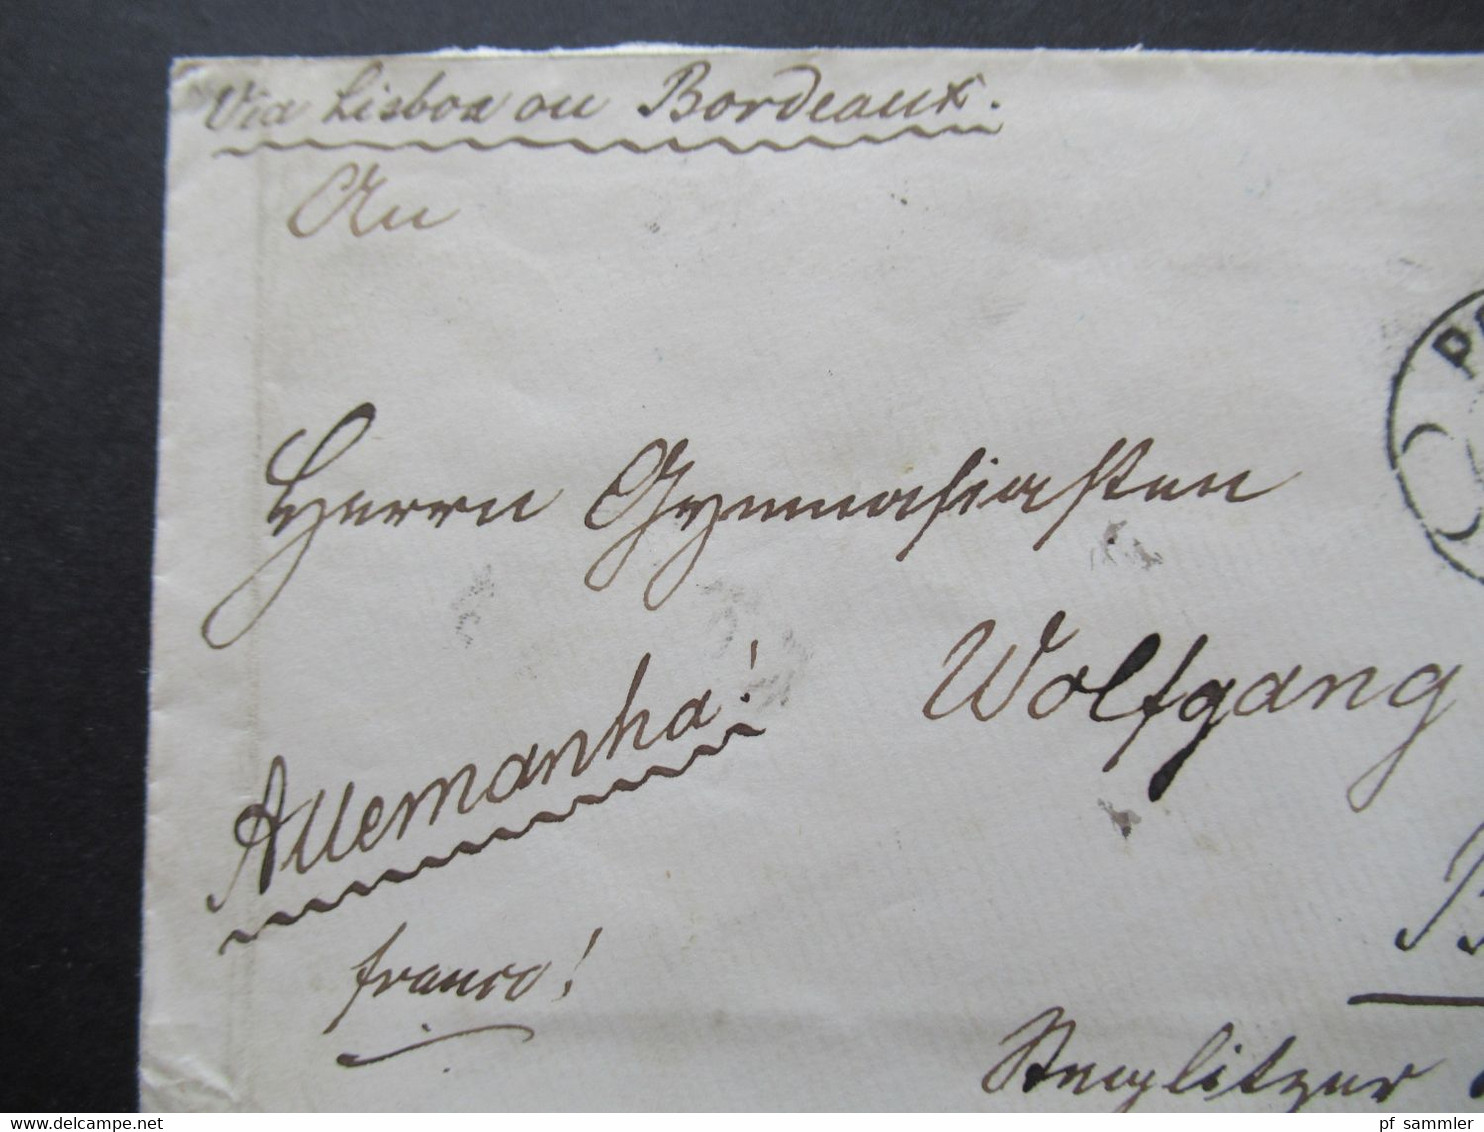 Via Lisboa ou Bordeaux.
An
Herrn Gymnasiasten
Wolfgang
Allemanha!
franco!
Steglitzer
pf sammler